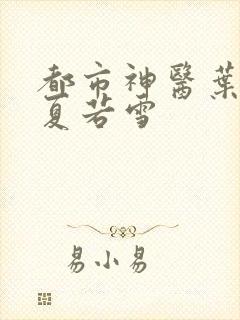 都市神醫葉
夏若雪
易小易